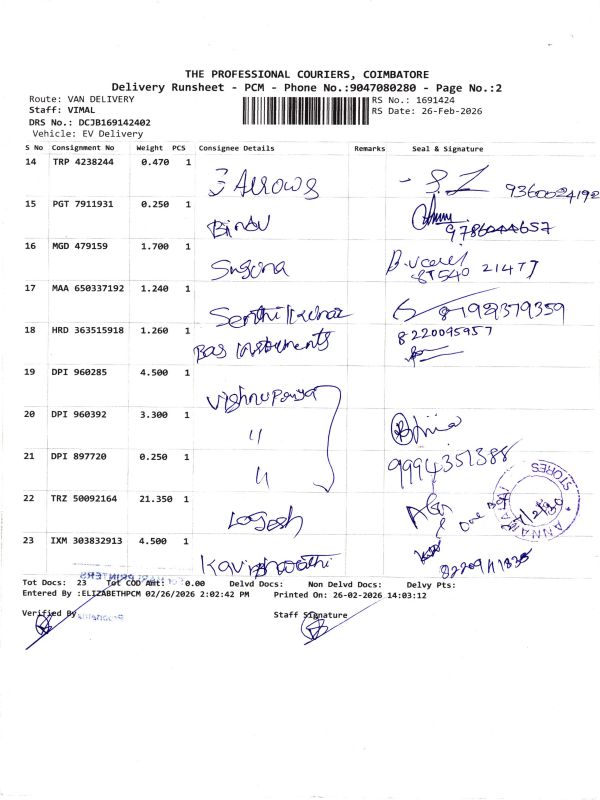 THE PROFESSIONAL COURIERS, COIMBATORE
Delivery Runsheet - PCM - Phone No.:9047080280 - Page No.:2
Route: VAN DELIVERY RS No.: 1691424
Staff: VIMAL RS Date: 26-Feb-2026
DRS No.: DCJB169142402
Vehicle: EV Delivery
S No Consignment No Weight PCS Consignee Details Remarks Seal & Signature
14 TRP 4238244 0.470 1 3 Arrows 9360024192
15 PGT 7911931 0.250 1 Bindu 9786044657
16 MGD 479159 1.700 1 Suguna
17 MAA 650337192 1.240 1 Senthilkumar
18 HRD 363515918 1.260 1 Bas Instruments 8220095957
19 DPI 960285 4.500 1 Vishnupriya
20 DPI 960392 3.300 1 "
21 DPI 897720 0.250 1 " 9994351388
22 TRZ 50092164 21.350 1 Logesh
23 IXM 303832913 4.500 1
STORES
Tot Docs: 23 Tot COD Amt: 0.00 Delvd Docs: Non Delvd Docs: Delvy Pts:
Entered By :ELIZABETHPCM 02/26/2026 2:02:42 PM Printed On: 26-02-2026 14:03:12
Verified By Staff Signature